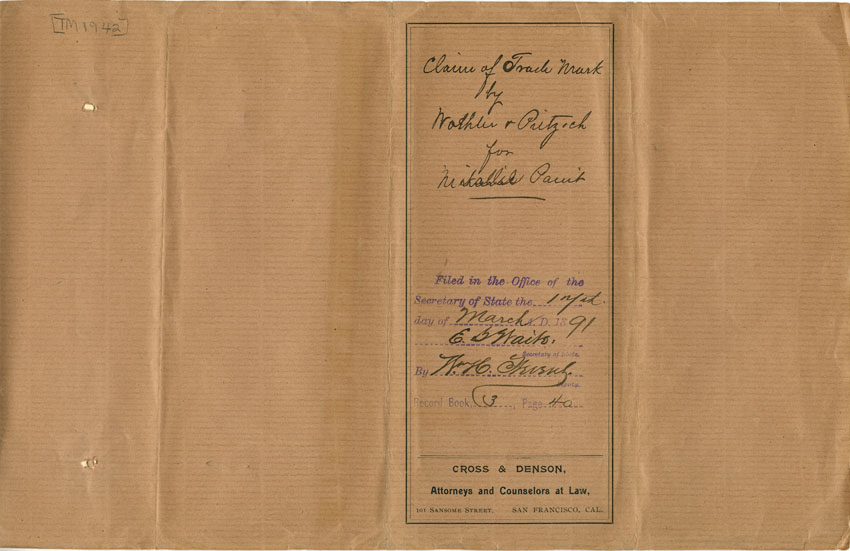 [TM 1942]
Claim of Trade Mark
by
Wothler & Pritzsch
for
Paint
Filed in the Office of the
Secretary of State the
day of March A. D. 1891
E. G. Waite.
Secretary of State.
By W. H.
Deputy.
Record Book 3, Page 40
CROSS & DENSON,
Attorneys and Counselors at Law,
101 SANSOME STREET, SAN FRANCISCO, CAL.